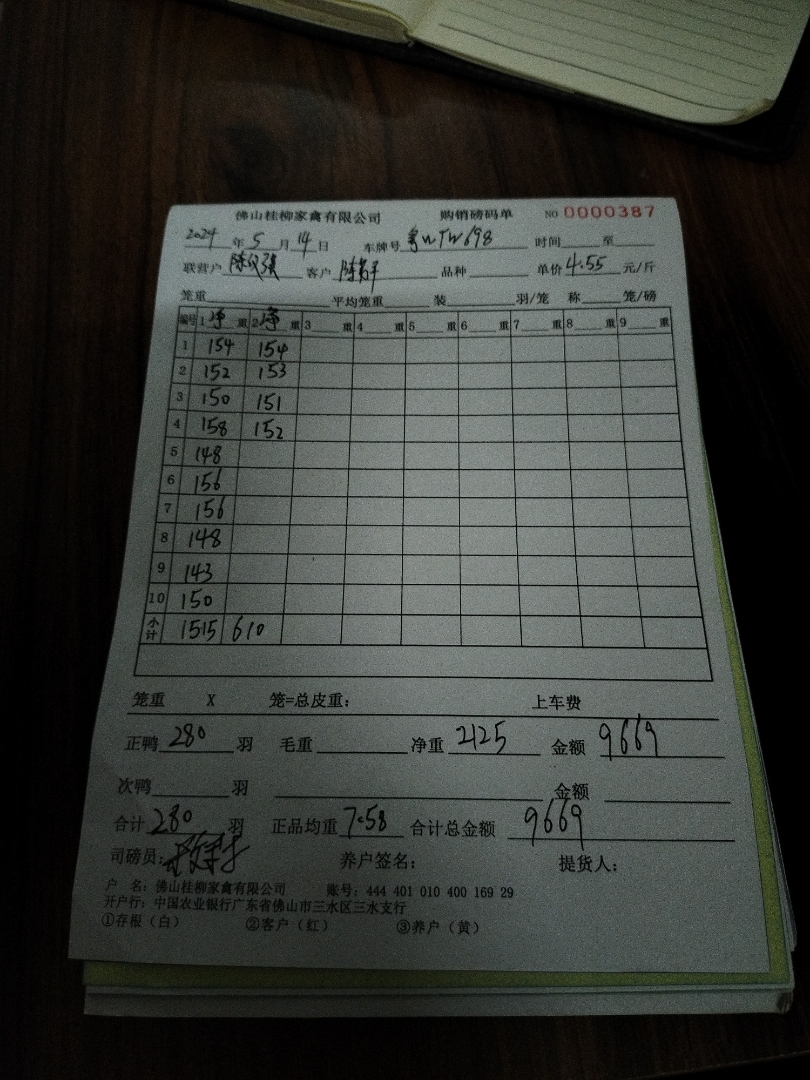 佛山桂柳家禽有限公司 购销磅码单 NO 0000387
2024 年 5 月 14 日 车牌号 粤WTW698 时间 至
联营户 陈 强 客户 陈 平 品种 单价 4.55 元/斤
笼重 平均笼重 装 羽/笼 称 笼/磅
编号 1 净 重 2 净 重 3 重 4 重 5 重 6 重 7 重 8 重 9 重
1 154 154
2 152 153
3 150 151
4 158 152
5 148
6 156
7 156
8 148
9 143
10 150
小计 1515 610
笼重 X 笼=总皮重: 上车费
正鸭 280 羽 毛重 净重 2125 金额 9669
次鸭 羽 金额
合计 280 羽 正品均重 7.58 合计总金额 9669
司磅员: 养户签名: 提货人:
户 名: 佛山桂柳家禽有限公司 账号: 444 401 010 400 169 29
开户行: 中国农业银行广东省佛山市三水区三水支行
①存根(白) ②客户(红) ③养户(黄)